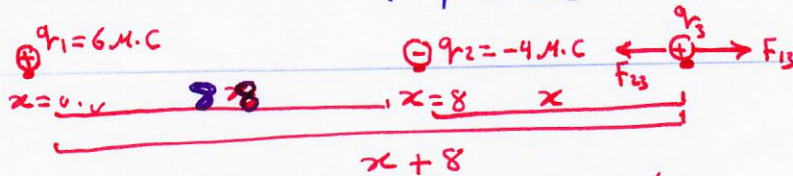 q₁=6 M.C
q₂=-4 M.C
q₃
F₂₃
F₁₃
x=0.0
8
x=8
x
x+8